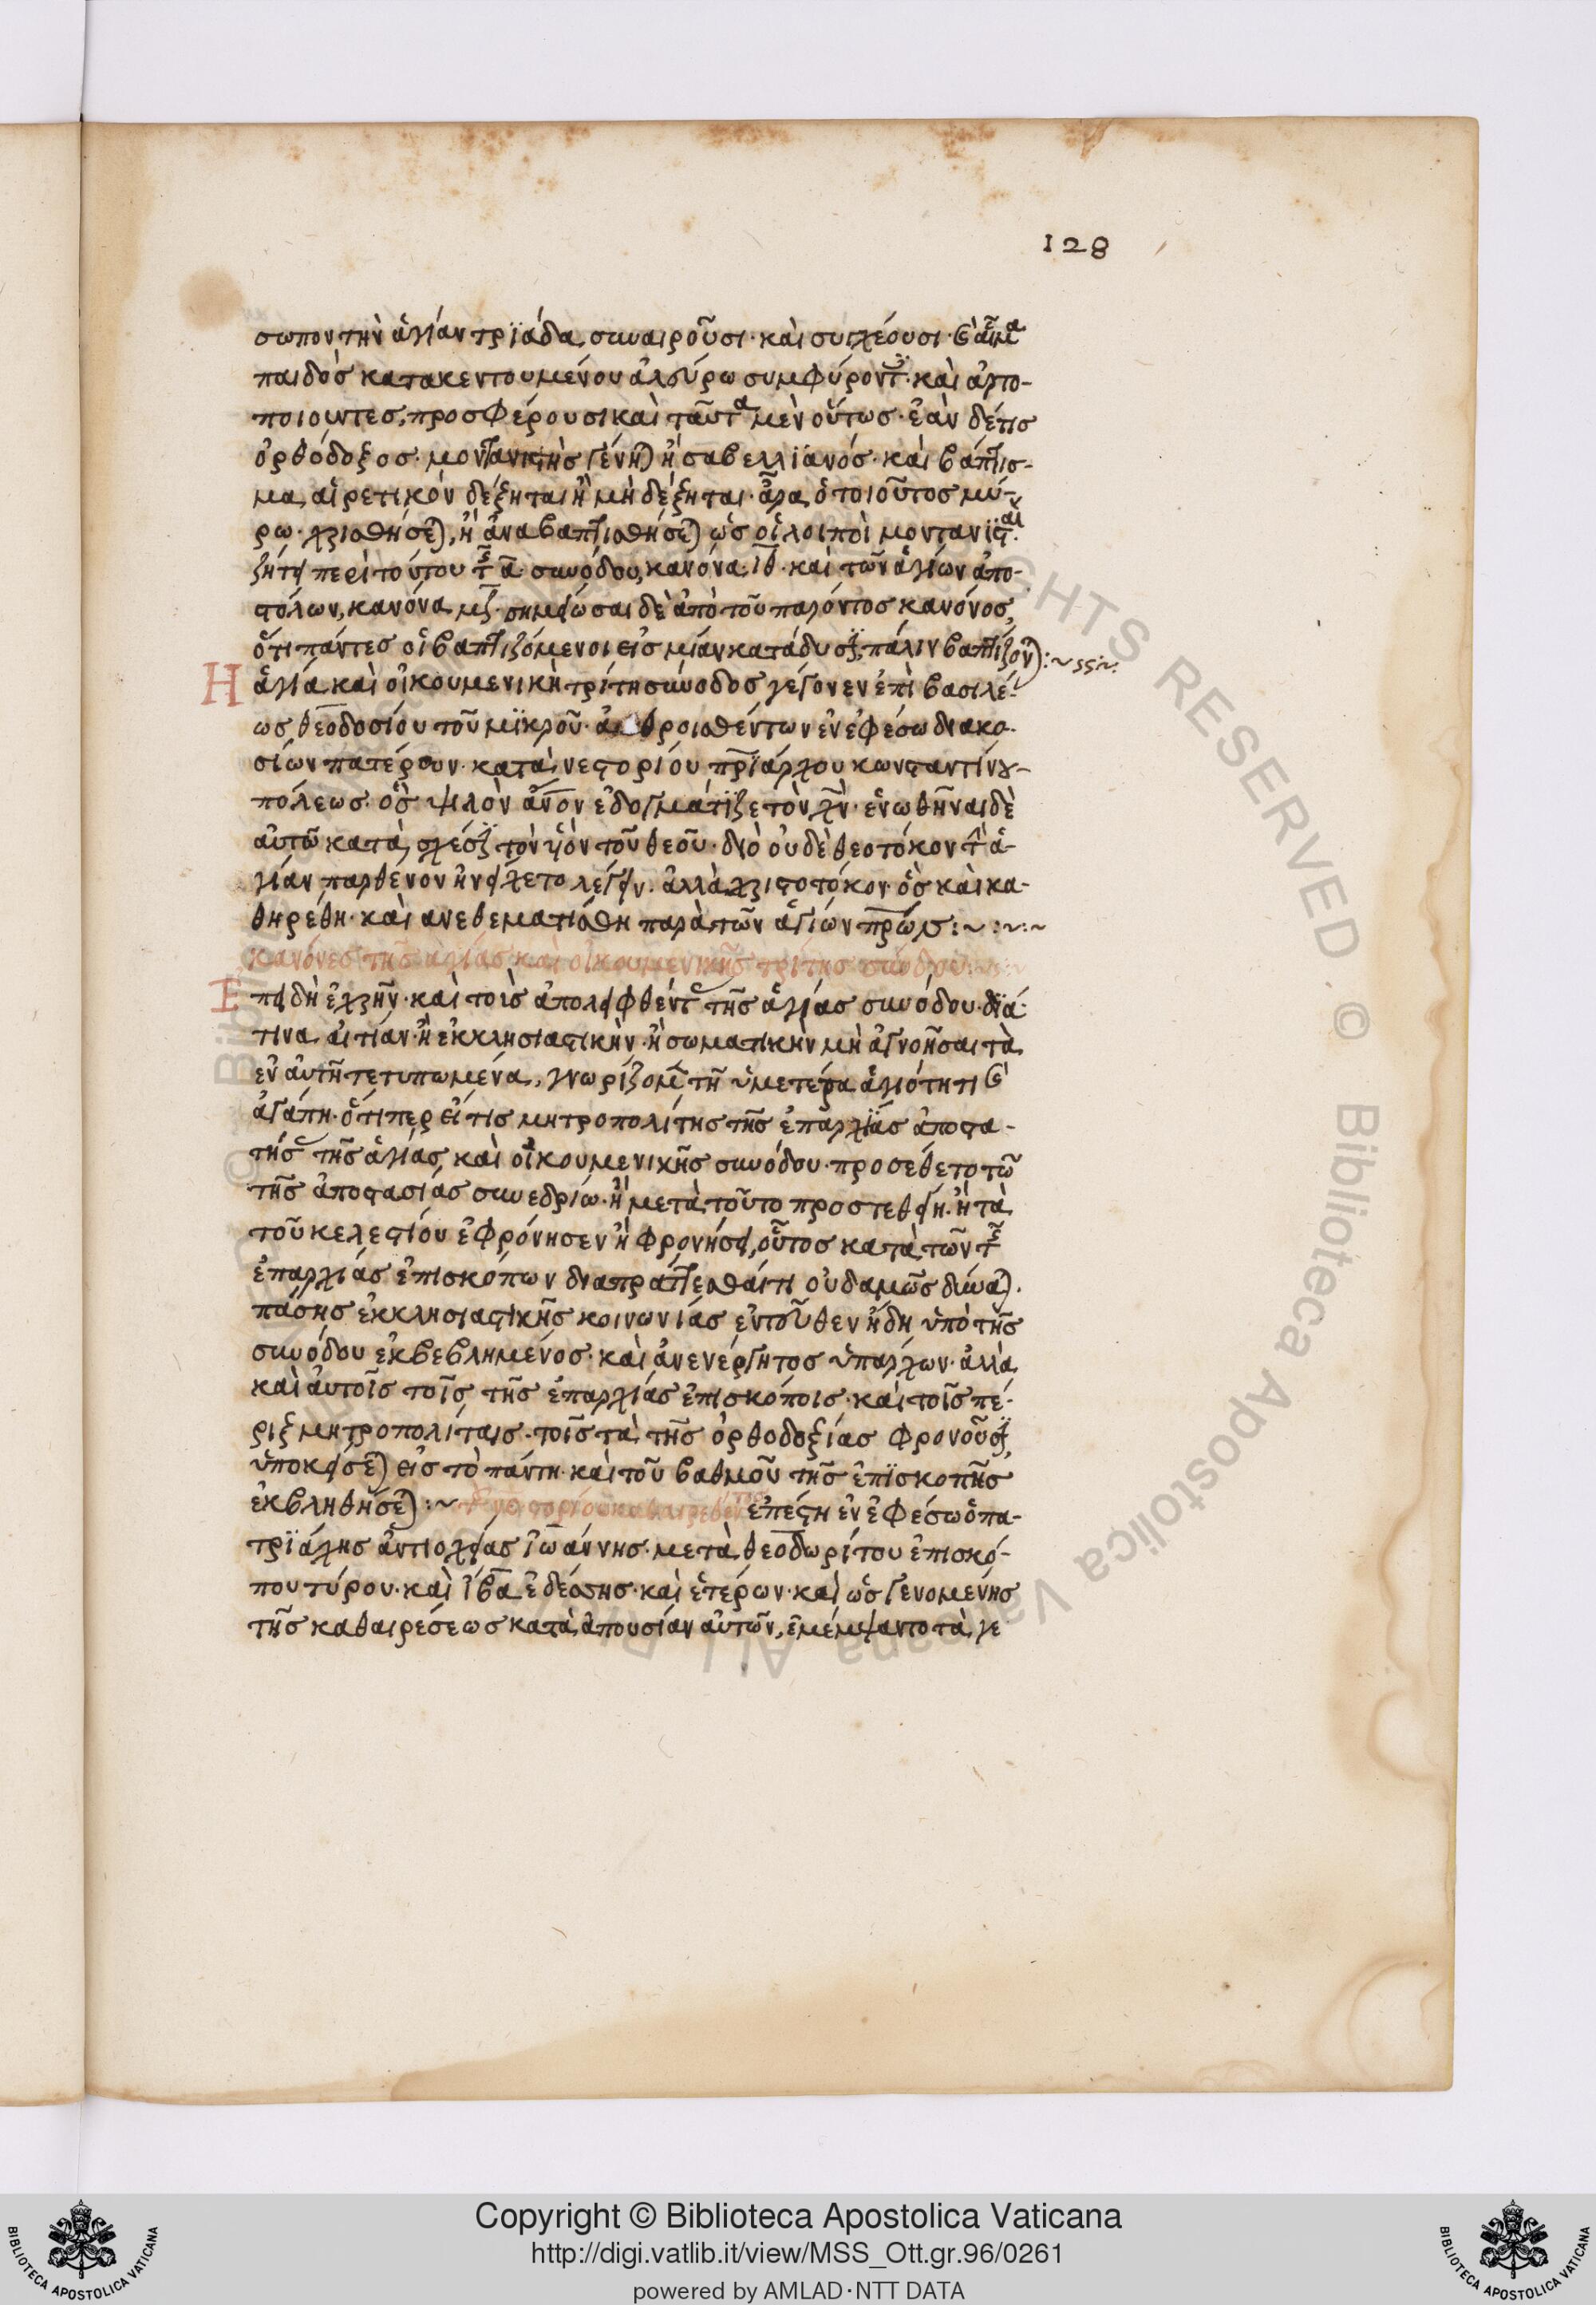 128
σωπον τὴν ἁγίαν τριάδα, συναιροῦσι· καὶ συγχέουσι· καὶ αἷμα
παιδὸς κατακεντουμένου ἀλεύρω συμφύροντες· καὶ ἀρτο-
ποιοῦντες, προσφέρουσι καὶ ταῦτα μὲν οὕτως· ἐὰν δέ τις
ὀρθόδοξος· μοντανιστὴς γένηται ἢ σαβελλϊανός· καὶ βάπτισ-
μα αἱρετικὸν δέξηται ἢ μὴ δέξηται· ἆρα ὁ τοιοῦτος μύ-
ρω· χρισθήσεται, ἢ ἀναβαπτισθήσεται ὡς οἱ λοιποὶ μοντανϊσταί·
ζήτει περὶ τούτου τῆς α συνόδου, κανόνα ιθ· καὶ τῶν ἁγίων ἀπο-
στόλων, κανόνα μζ· σημείωσαι δὲ ἀπὸ τοῦ παρόντος κανόνος,
ὅτι πάντες οἱ βαπτιζόμενοι εἰς μίαν κατάδυσιν, πάλιν βαπτίζονται:~
Η ἁγία καὶ οἰκουμενικὴ τρίτη σύνοδος γέγονεν ἐπὶ βασιλέ-
ως θεοδοσίου τοῦ μϊκροῦ· ἀθροισθέντων ἐν ἐφέσω διακο-
σίων πατέρων· κατὰ νεστορίου πρϊάρχου κωνσταντίνου-
πόλεως· ὃς ψιλὸν ἄνον ἐδογμάτϊζε τὸν χν· ἑνωθῆναι δὲ
αὐτῶ κατὰ σχέσϊν τὸν υἱὸν τοῦ θεοῦ· διὸ οὐδὲ θεοτόκον τὴν ἁ-
γίαν παρθένον ἠνείχετο λέγειν· ἀλλὰ χριστοτόκον· ὃς καὶ κα-
θηρέθη· καὶ ανεθεματίσθη παρὰ τῶν ἁγίων πρων:~:~:~
κανόνες τῆς ἁγίας καὶ οἰκουμενικῆς τρίτης συνόδου:~
Επειδὴ ἐχρῆν· καὶ τοὺς ἀπολειφθέντας τῆς ἁγίας συνόδου· δϊά
τινα αἰτίαν· ἢ ἐκκλησιαστικὴν· ἢ σωματικὴν μὴ ἀγνοῆσαι τὰ
ἐν αὐτῆ τετυπωμένα, γνωρίζομεν τῆ ὑμετέρα ἁγιότητι καὶ
ἀγάπη· ὅτι περ εἴ τις μητροπολίτης τῆς ἐπαρχϊας ἀποστα-
τήσας τῆς ἁγίας καὶ οἰκουμενικῆς συνόδου· προσέθετο τῶ
τῆς ἀποστασίας συνεδρίω· ἢ μετὰ τοῦτο προστεθείη· ἢ τὰ
τοῦ κελεστίου ἐφρόνησεν ἢ φρονήσει, οὗτος κατὰ τῶν τῆς
ἐπαρχίας ἐπισκόπων διαπράττεσθαί τι οὐδαμῶς δύναται·
πάσης ἐκκλησιαστικῆς κοινωνίας ἐντεῦθεν ἤδη ὑπὸ τῆς
συνόδου ἐκβεβλημένος· καὶ ἀνενέργητος ὑπάρχων· ἀλλὰ
καὶ αὐτοῖς τοῖς τῆς ἐπαρχίας ἐπισκόποις· καὶ τοῖς πέ-
ριξ μητροπολίταις· τοῖς τὰ τῆς ὀρθοδοξίας φρονοῦσϊν,
ὑποκείσεται εἰς τὸ πάντη· καὶ τοῦ βαθμοῦ τῆς ἐπϊσκοπῆς
ἐκβληθήσεται:~ νεστορίου καθαιρεθέντος ἐπέστη ἐν ἐφέσω ὁ πα-
τρϊάρχης ἀντιοχείας ἰωάννης· μετὰ θεοδωρίτου ἐπισκό-
που τύρου· καὶ ἴβα ἐδέσης· καὶ ἑτέρων· καὶ ὡς γενομένης
τῆς καθαιρέσεως κατὰ ἀπουσίαν αὐτῶν, ἐμέμψαντο τὰ γε
Copyright © Biblioteca Apostolica Vaticana
http://digi.vatlib.it/view/MSS_Ott.gr.96/0261
powered by AMLAD·NTT DATA